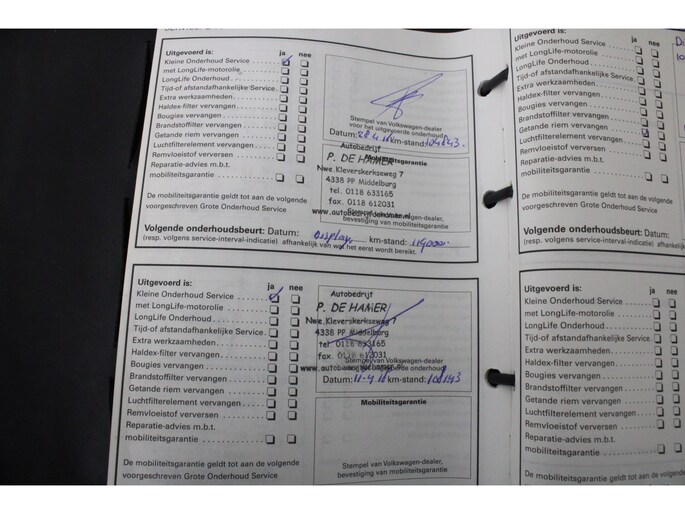 Uitgevoerd is: ja nee
Kleine Onderhoud Service
met LongLife-motorolie
LongLife Onderhoud
Tijd-of afstandafhankelijke Service
Extra werkzaamheden
Haldex-filter vervangen
Bougies vervangen
Brandstoffilter vervangen
Getande riem vervangen
Luchtfilterelement vervangen
Remvloeistof verversen
Reparatie-advies m.b.t.
mobiliteitsgarantie
De mobiliteitsgarantie geldt tot aan de volgende
voorgeschreven Grote Onderhoud Service
Stempel van Volkswagen-dealer
voor het uitgevoerde onderhoud
Datum: km-stand:
Autobedrijf
Mobiliteitsgarantie
P. DE HAMER
Nwe. Kleverskerkseweg 7
4338 PP Middelburg
tel. 0118 633165
fax. 0118 612031
Stempel van Volkswagen-dealer,
bevestiging van mobiliteitsgarantie
Volgende onderhoudsbeurt: Datum: display km-stand:
(resp. volgens service-interval-indicatie) afhankelijk van wat het eerst wordt bereikt.
Uitgevoerd is: ja nee
Kleine Onderhoud Service
met LongLife-motorolie
LongLife Onderhoud
Tijd-of afstandafhankelijke Service
Extra werkzaamheden
Haldex-filter vervangen
Bougies vervangen
Brandstoffilter vervangen
Getande riem vervangen
Luchtfilterelement vervangen
Remvloeistof verversen
Reparatie-advies m.b.t.
mobiliteitsgarantie
De mobiliteitsgarantie geldt tot aan de volgende
voorgeschreven Grote Onderhoud Service
Autobedrijf
P. DE HAMER
Nwe. Kleverskerkseweg 7
4338 PP Middelburg
tel. 0118 633165
fax. 0118 612031
Stempel van Volkswagen-dealer
Datum: km-stand:
Mobiliteitsgarantie
Stempel van Volkswagen-dealer,
bevestiging van mobiliteitsgarantie
Uitgevoerd is: ja nee
Kleine Onderhoud Service
met LongLife-motorolie
LongLife Onderhoud
Tijd-of afstandafhankelijke Service
Extra werkzaamheden
Haldex-filter vervangen
Bougies vervangen
Brandstoffilter vervangen
Getande riem vervangen
Luchtfilterelement vervangen
Remvloeistof verversen
Reparatie-advies m.b.t.
mobiliteitsgarantie
De mobiliteitsgarantie geldt tot aan de volgende
voorgeschreven Grote Onderhoud Service
Volgende onderhoudsbeurt:
(resp. volgens service-interval-indicatie)
Uitgevoerd is: ja nee
Kleine Onderhoud Service
met LongLife-motorolie
LongLife Onderhoud
Tijd-of afstandafhankelijke Service
Extra werkzaamheden
Haldex-filter vervangen
Bougies vervangen
Brandstoffilter vervangen
Getande riem vervangen
Luchtfilterelement vervangen
Remvloeistof verversen
Reparatie-advies m.b.t.
mobiliteitsgarantie
De mobiliteitsgarantie geldt tot aan de volgende
voorgeschreven Grote Onderhoud Service